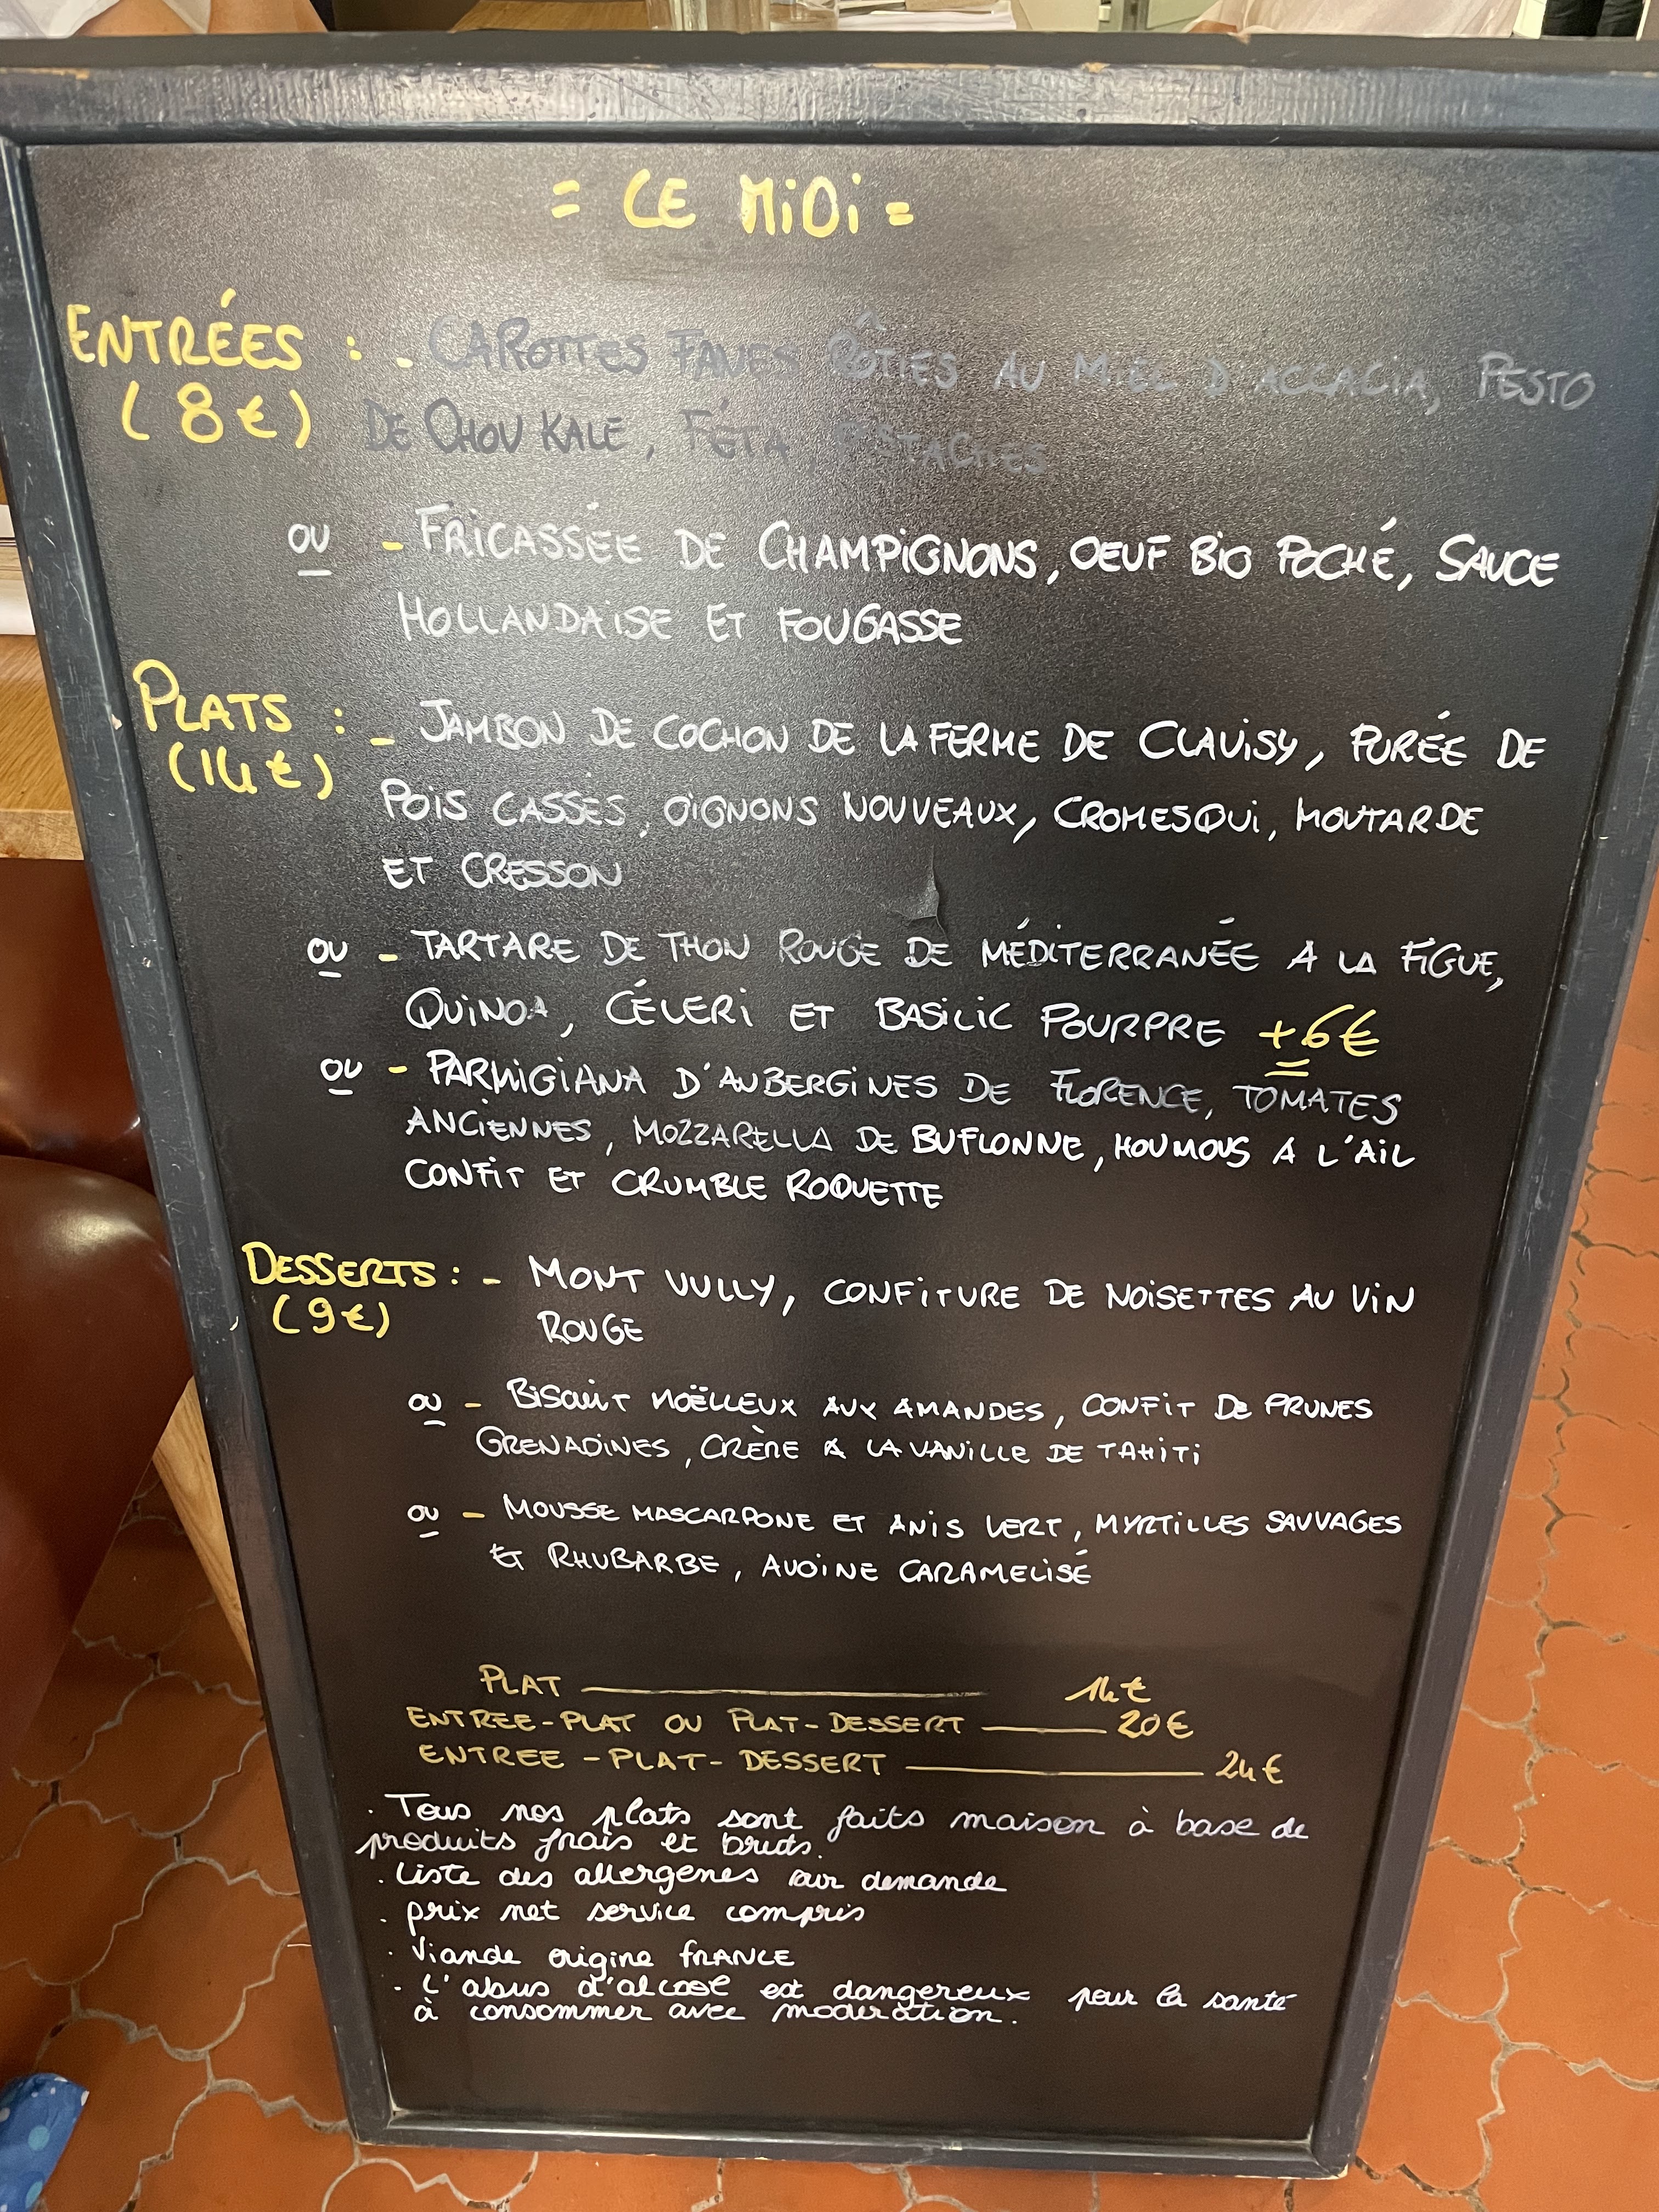 = CE MiDi =
ENTRÉES : - CAROTTES FANES RÔTIES AU MIEL D'ACCACIA, PESTO
(8€) DE CHOU KALE, FÉTA, PISTACHES
OU - FRICASSÉE DE CHAMPIGNONS, OEUF BIO POCHÉ, SAUCE
HOLLANDAISE ET FOUGASSE
PLATS : - JAMBON DE COCHON DE LA FERME DE CLAVISY, PURÉE DE
(14€) POIS CASSÉS, OIGNONS NOUVEAUX, CROMESQUI, MOUTARDE
ET CRESSON
OU - TARTARE DE THON ROUGE DE MÉDITERRANÉE A LA FIGUE,
QUINOA, CÉLERI ET BASILIC POURPRE +6€
OU - PARMIGIANA D'AUBERGINES DE FLORENCE, TOMATES
ANCIENNES, MOZZARELLA DE BUFLONNE, HOUMOUS A L'AIL
CONFIT ET CRUMBLE ROQUETTE
DESSERTS : - MONT VULLY, CONFITURE DE NOISETTES AU VIN
(9€) ROUGE
OU - BISCUIT MOËLLEUX AUX AMANDES, CONFIT DE PRUNES
GRENADINES, CRÈME A LA VANILLE DE TAHITI
OU - MOUSSE MASCARPONE ET ANIS VERT, MYRTILLES SAUVAGES
ET RHUBARBE, AVOINE CARAMELISÉ
PLAT 14€
ENTREE-PLAT OU PLAT-DESSERT 20€
ENTREE-PLAT-DESSERT 24€
. Tous nos plats sont faits maison à base de
produits frais et bruts.
. Liste des allergenes sur demande
. prix net service compris
. Viande origine FRANCE
. L'abus d'alcool est dangereux pour la santé
à consommer avec moderation.